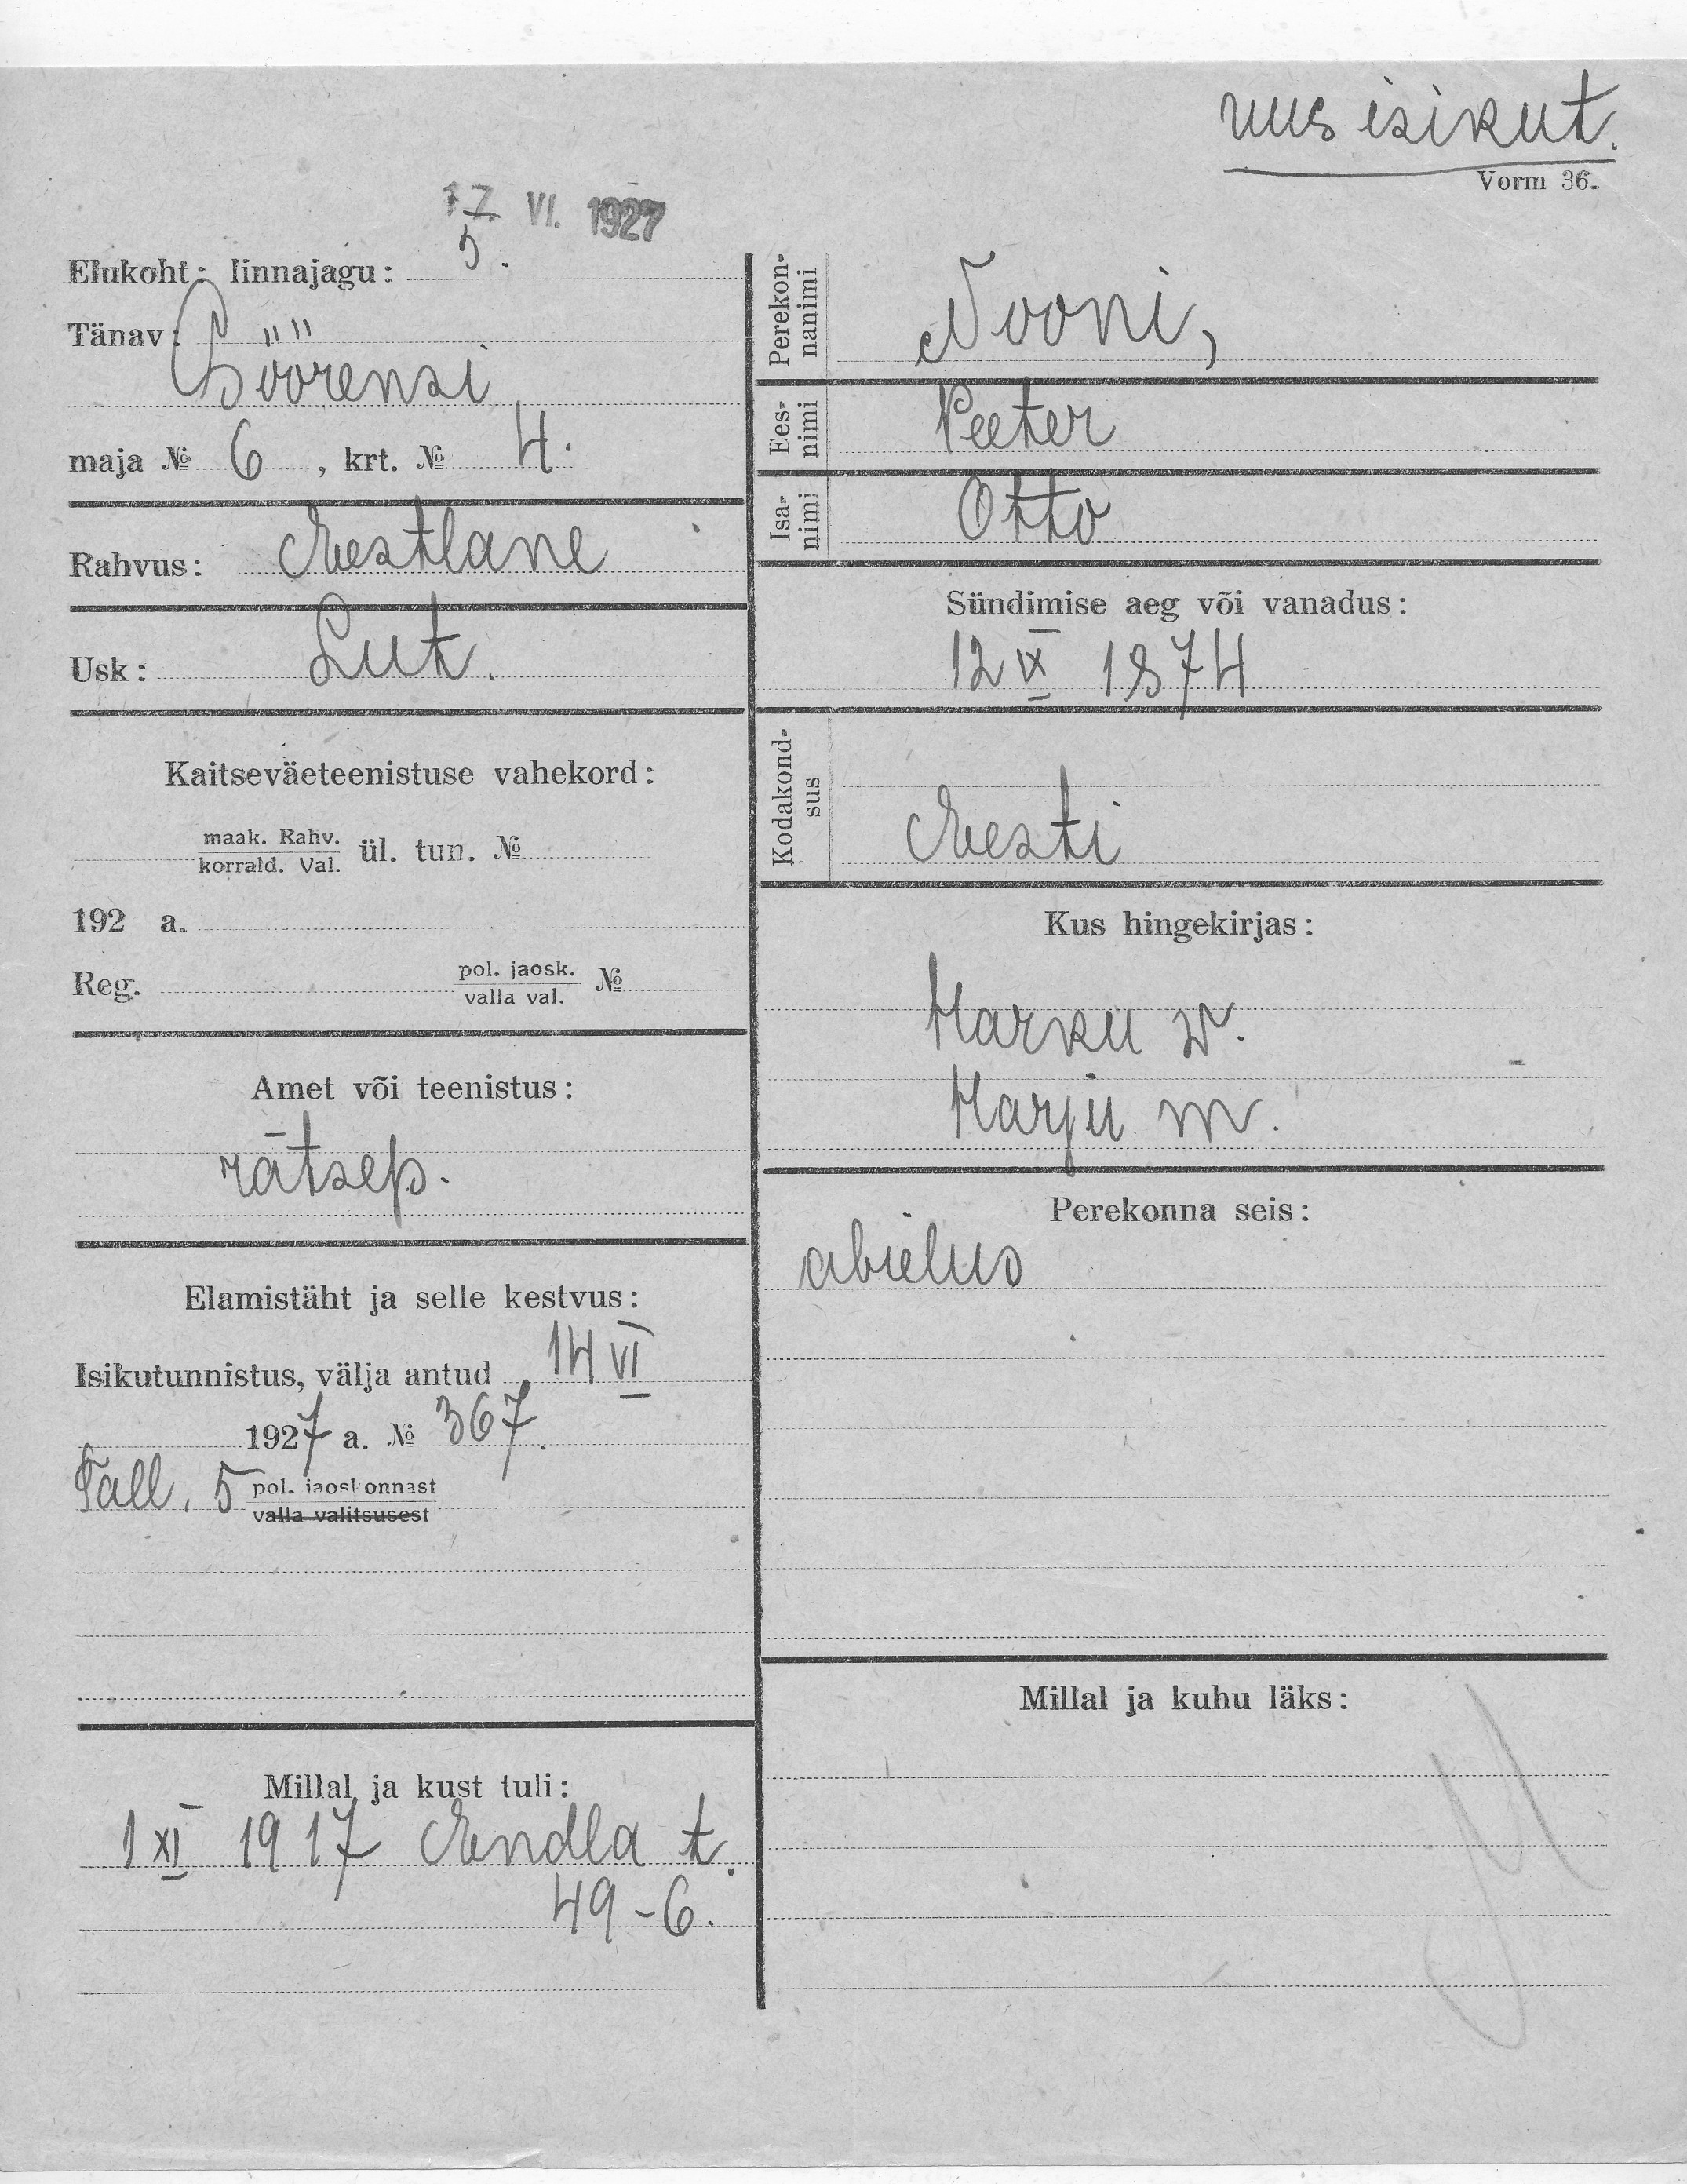 uus isikut.
Vorm 36.
17. VI. 1927
Elukoht: linnajagu: 5.
Tänav: Söörensi
maja № 6, krt. № 4.
Rahvus: Eestlane
Usk: Lut.
Kaitseväeteenistuse vahekord:
maak. Rahv.
korrald. Val. ül. tun. №
192 a.
Reg. pol. jaosk. №
valla val.
Amet või teenistus:
rätsep.
Elamistäht ja selle kestvus:
Isikutunnistus, välja antud 14 VI
1927 a. № 367.
Tall. 5 pol. jaoskonnast
valla valitsusest
Millal ja kust tuli:
1 XI 1917 Endla t.
49-6.
Perekon-
nanimi Nooni,
Ees-
nimi Peeter
Isa-
nimi Otto
Sündimise aeg või vanadus:
12 IX 1874
Kodakond-
sus Eesti
Kus hingekirjas:
Harku w.
Harju m.
Perekonna seis:
abielus
Millal ja kuhu läks: